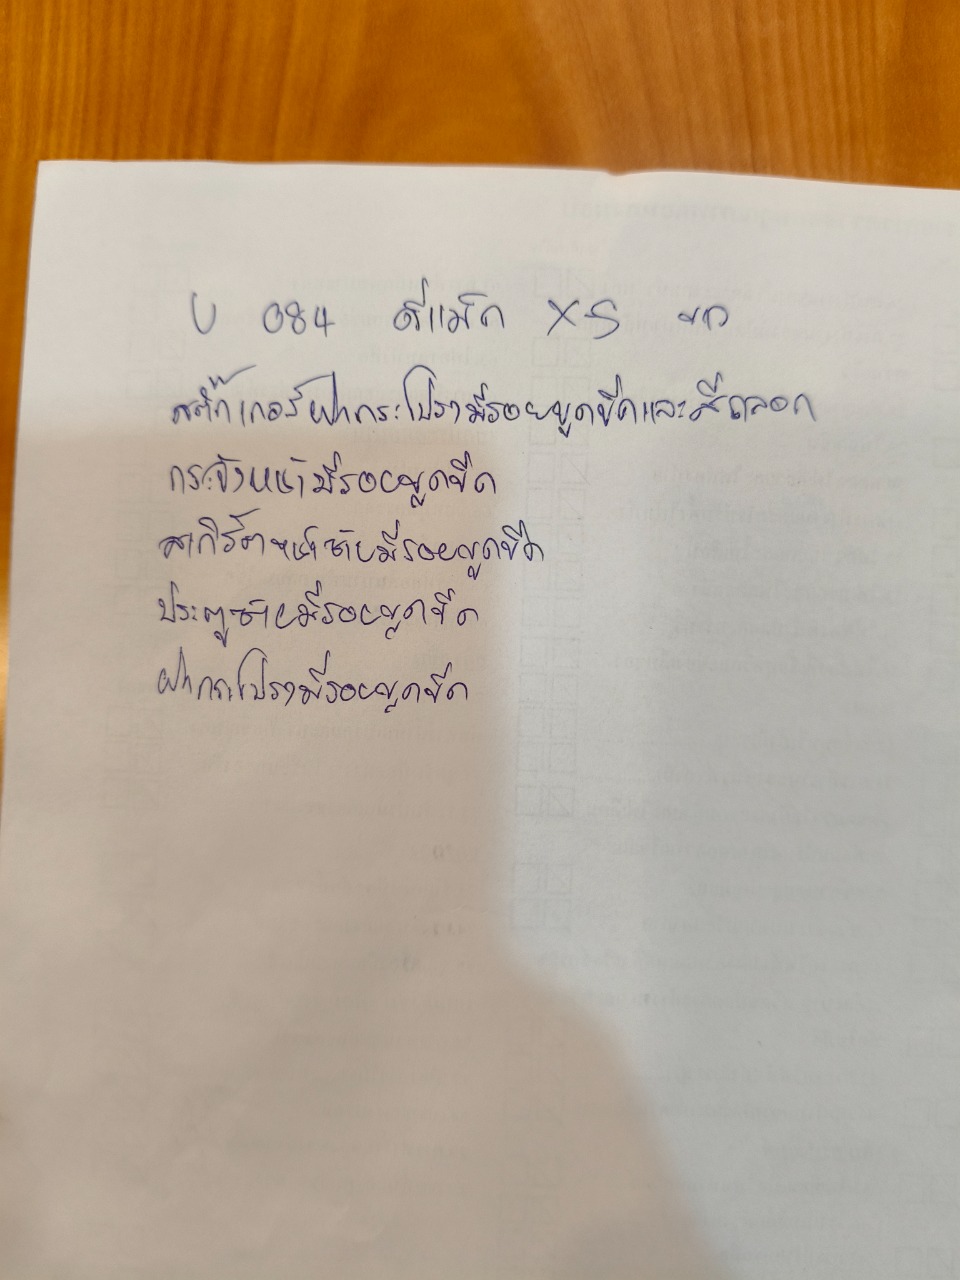 U 084 ดีแม็ก XS
สติ๊กเกอร์ฝากระโปรงมีรอยขูดขีดและสีถลอก
กระจังหน้ามีรอยขูดขีด
สเกิร์ตหน้าซ้ายมีรอยขูดขีด
ประตูซ้ายมีรอยขูดขีด
ฝากระโปรงมีรอยขูดขีด